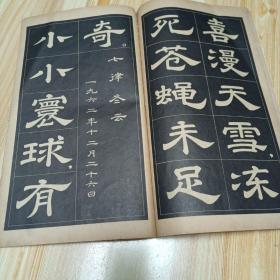 喜漫天雪，冻
死苍蝇未足
奇。
七律 冬云
一九六二年十二月二十六日
小小寰球，有